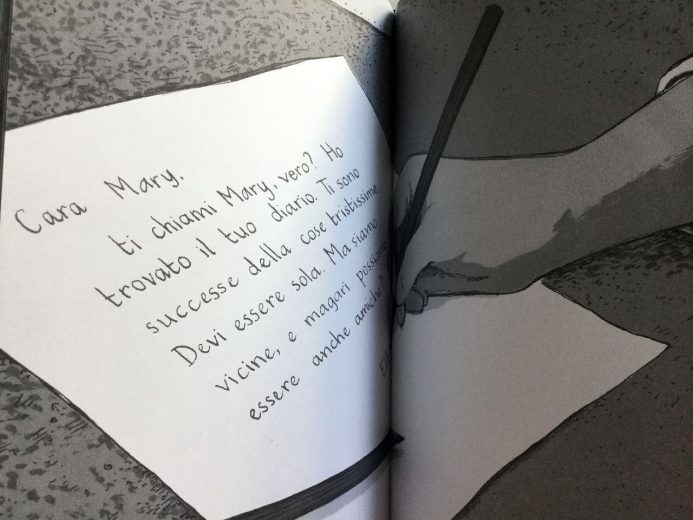 Cara Mary,
ti chiami Mary, vero? Ho
trovato il tuo diario. Ti sono
successe della cose tristissime
Devi essere sola. Ma siamo
vicine, e magari possiamo
essere anche amiche?